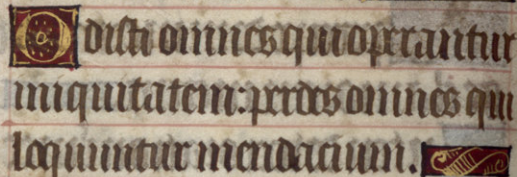 Odisti omnes qui operantur
iniquitatem: perdes omnes qui
loquuntur mendacium.